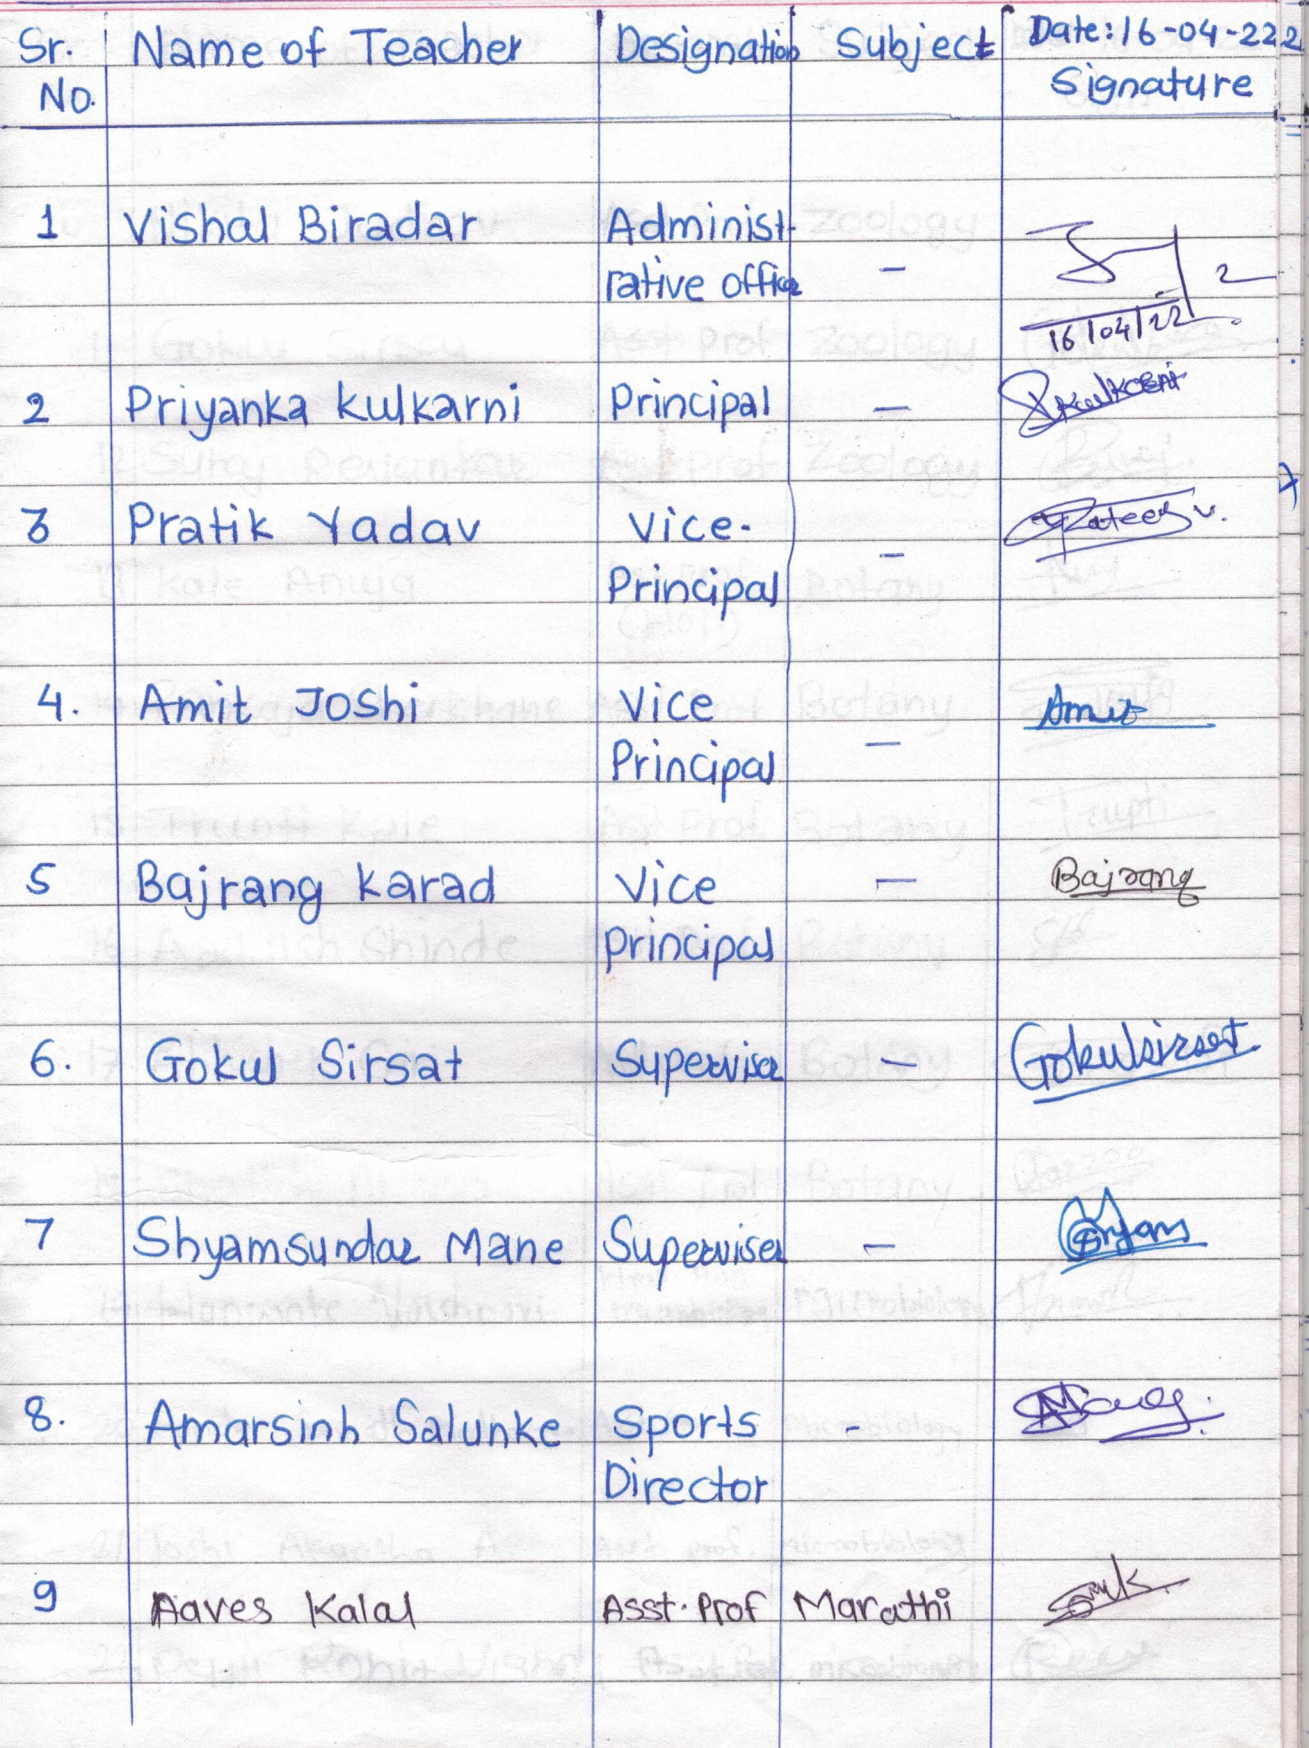 Sr. No. Name of Teacher Designation Subject Date: 16-04-222 Signature
1 Vishal Biradar Administ-
rative officer -
16/04/22
2 Priyanka kulkarni Principal - kulkarni
3 Pratik Yadav Vice-
Principal -
4. Amit Joshi Vice Amit
Principal -
5 Bajrang karad Vice - Bajrang
principal
6. Gokul Sirsat Superviser - Gokulsirsat
7 Shyamsundar Mane Superviser -
8. Amarsinh Salunke Sports -
Director
9 Aaves Kalal Asst. Prof Marathi